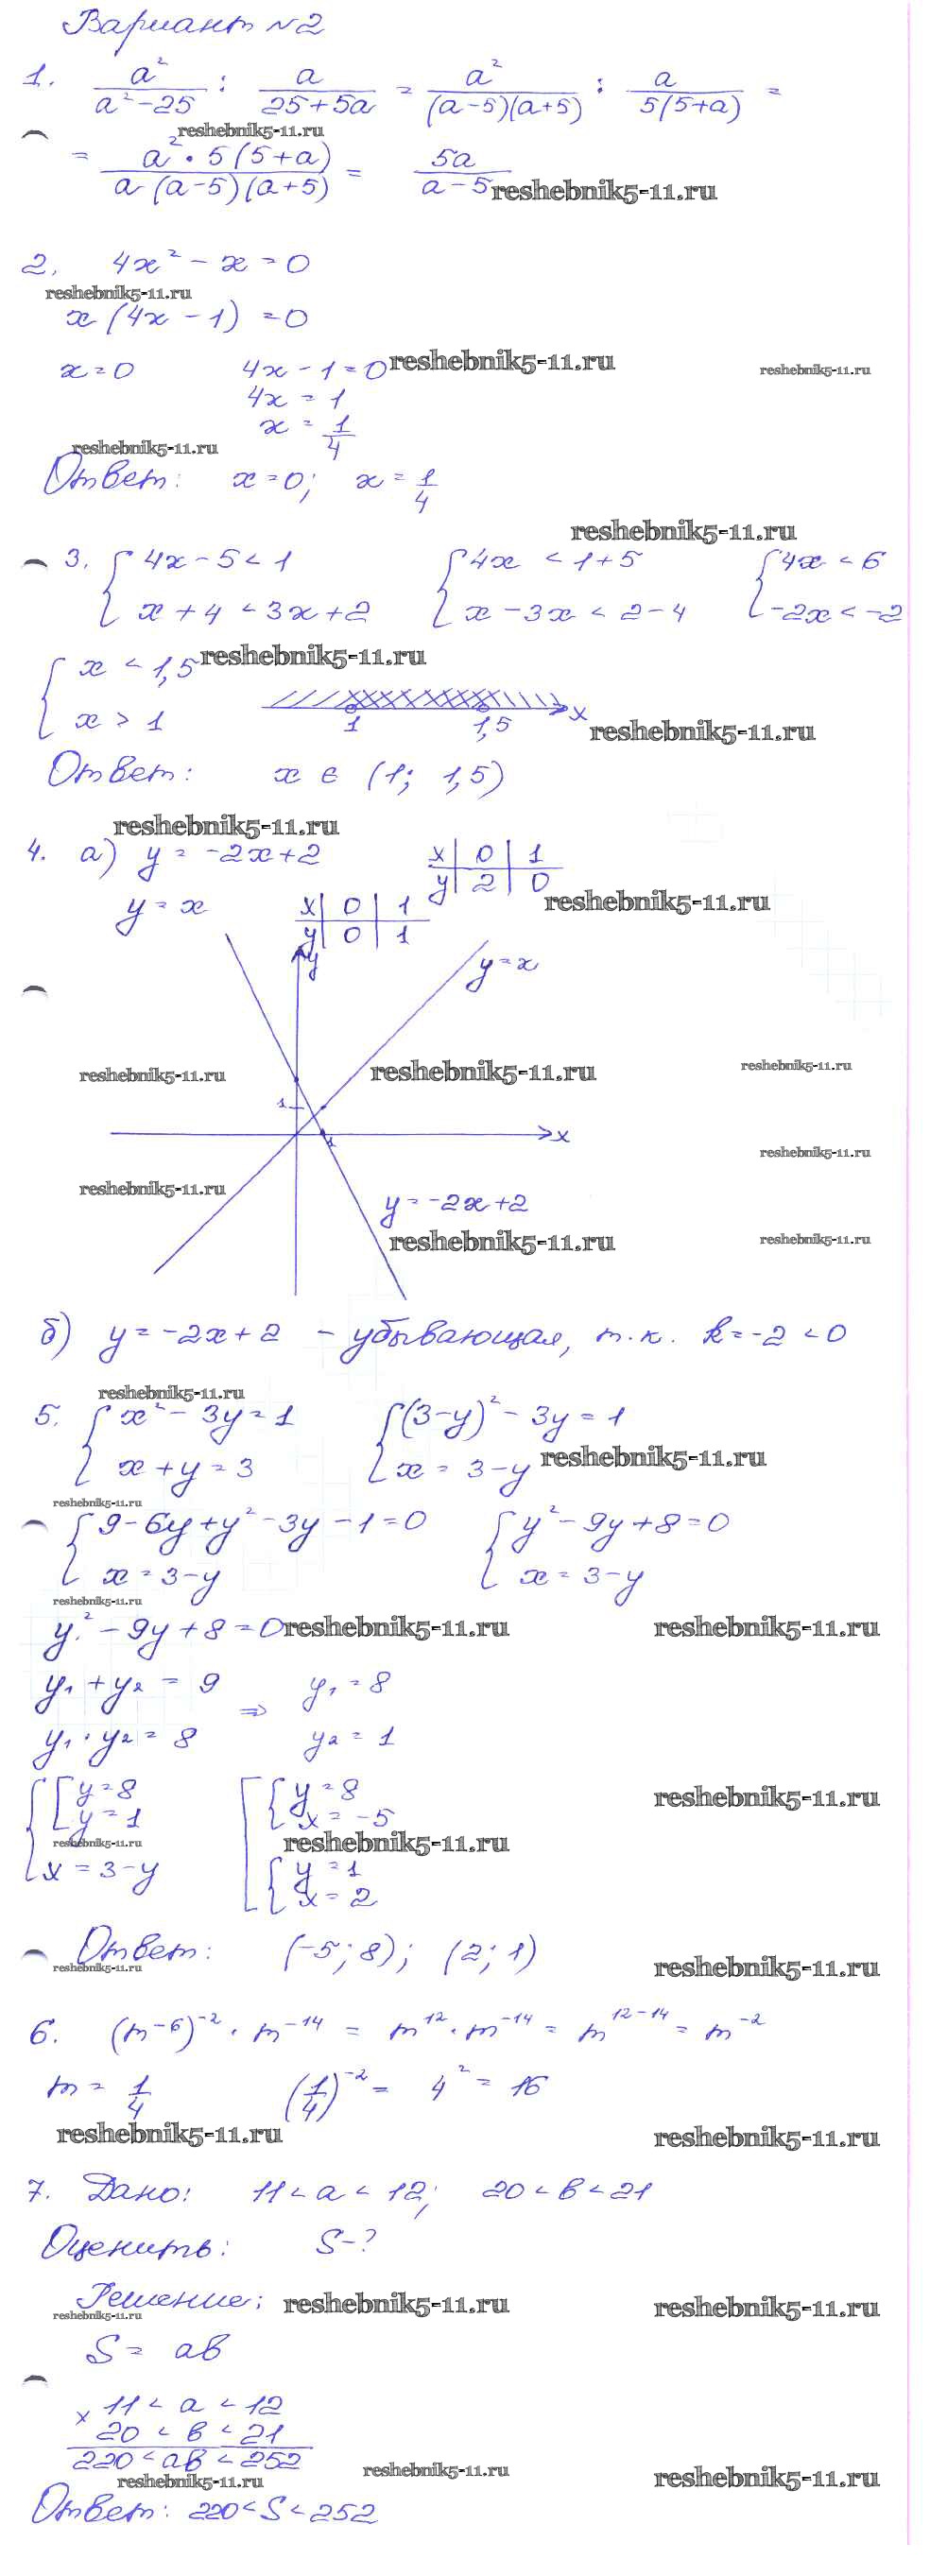 Вариант №2
1. a²/(a²-25) : a/(25+5a) = a²/((a-5)(a+5)) : a/(5(5+a)) =
reshebnik5-11.ru
= a²•5(5+a)/(a(a-5)(a+5)) = 5a/(a-5) reshebnik5-11.ru
2. 4x² - x = 0
reshebnik5-11.ru
x(4x - 1) = 0
x=0 4x - 1 = 0 reshebnik5-11.ru reshebnik5-11.ru
4x = 1
x = 1/4
reshebnik5-11.ru
Ответ: x=0; x = 1/4
reshebnik5-11.ru
3. { 4x - 5 < 1 { 4x < 1+5 { 4x < 6
x + 4 < 3x + 2 x - 3x < 2 - 4 -2x < -2
{ x < 1,5 reshebnik5-11.ru
x > 1 1 1,5 x reshebnik5-11.ru
Ответ: x ∈ (1; 1,5)
reshebnik5-11.ru
4. а) y = -2x+2 x | 0 | 1
y | 2 | 0
reshebnik5-11.ru
y = x x | 0 | 1
y | 0 | 1
y
y = x
reshebnik5-11.ru reshebnik5-11.ru reshebnik5-11.ru
1
1 x
reshebnik5-11.ru
reshebnik5-11.ru
y = -2x+2
reshebnik5-11.ru reshebnik5-11.ru
б) y = -2x + 2 - убывающая, т.к. k = -2 < 0
reshebnik5-11.ru
5. { x² - 3y = 1 { (3-y)² - 3y = 1
x + y = 3 x = 3 - y reshebnik5-11.ru
reshebnik5-11.ru
{ 9 - 6y + y² - 3y - 1 = 0 { y² - 9y + 8 = 0
x = 3 - y x = 3 - y
reshebnik5-11.ru
y² - 9y + 8 = 0 reshebnik5-11.ru reshebnik5-11.ru
y₁ + y₂ = 9 ⇒ y₁ = 8
y₁ · y₂ = 8 y₂ = 1
{ [ y = 8 [ { y = 8 reshebnik5-11.ru
y = 1 x = -5
reshebnik5-11.ru reshebnik5-11.ru
x = 3 - y { y = 1
x = 2
Ответ: (-5; 8); (2; 1)
reshebnik5-11.ru reshebnik5-11.ru
6. (m⁻⁶)⁻² · m⁻¹⁴ = m¹² · m⁻¹⁴ = m¹²⁻¹⁴ = m⁻²
m = 1/4 (1/4)⁻² = 4² = 16
reshebnik5-11.ru reshebnik5-11.ru
7. Дано: 11 < a < 12; 20 < b < 21
Оценить: S - ?
Решение: reshebnik5-11.ru reshebnik5-11.ru
reshebnik5-11.ru
S = ab
× 11 < a < 12
20 < b < 21
220 < ab < 252
reshebnik5-11.ru reshebnik5-11.ru reshebnik5-11.ru
Ответ: 220 < S < 252